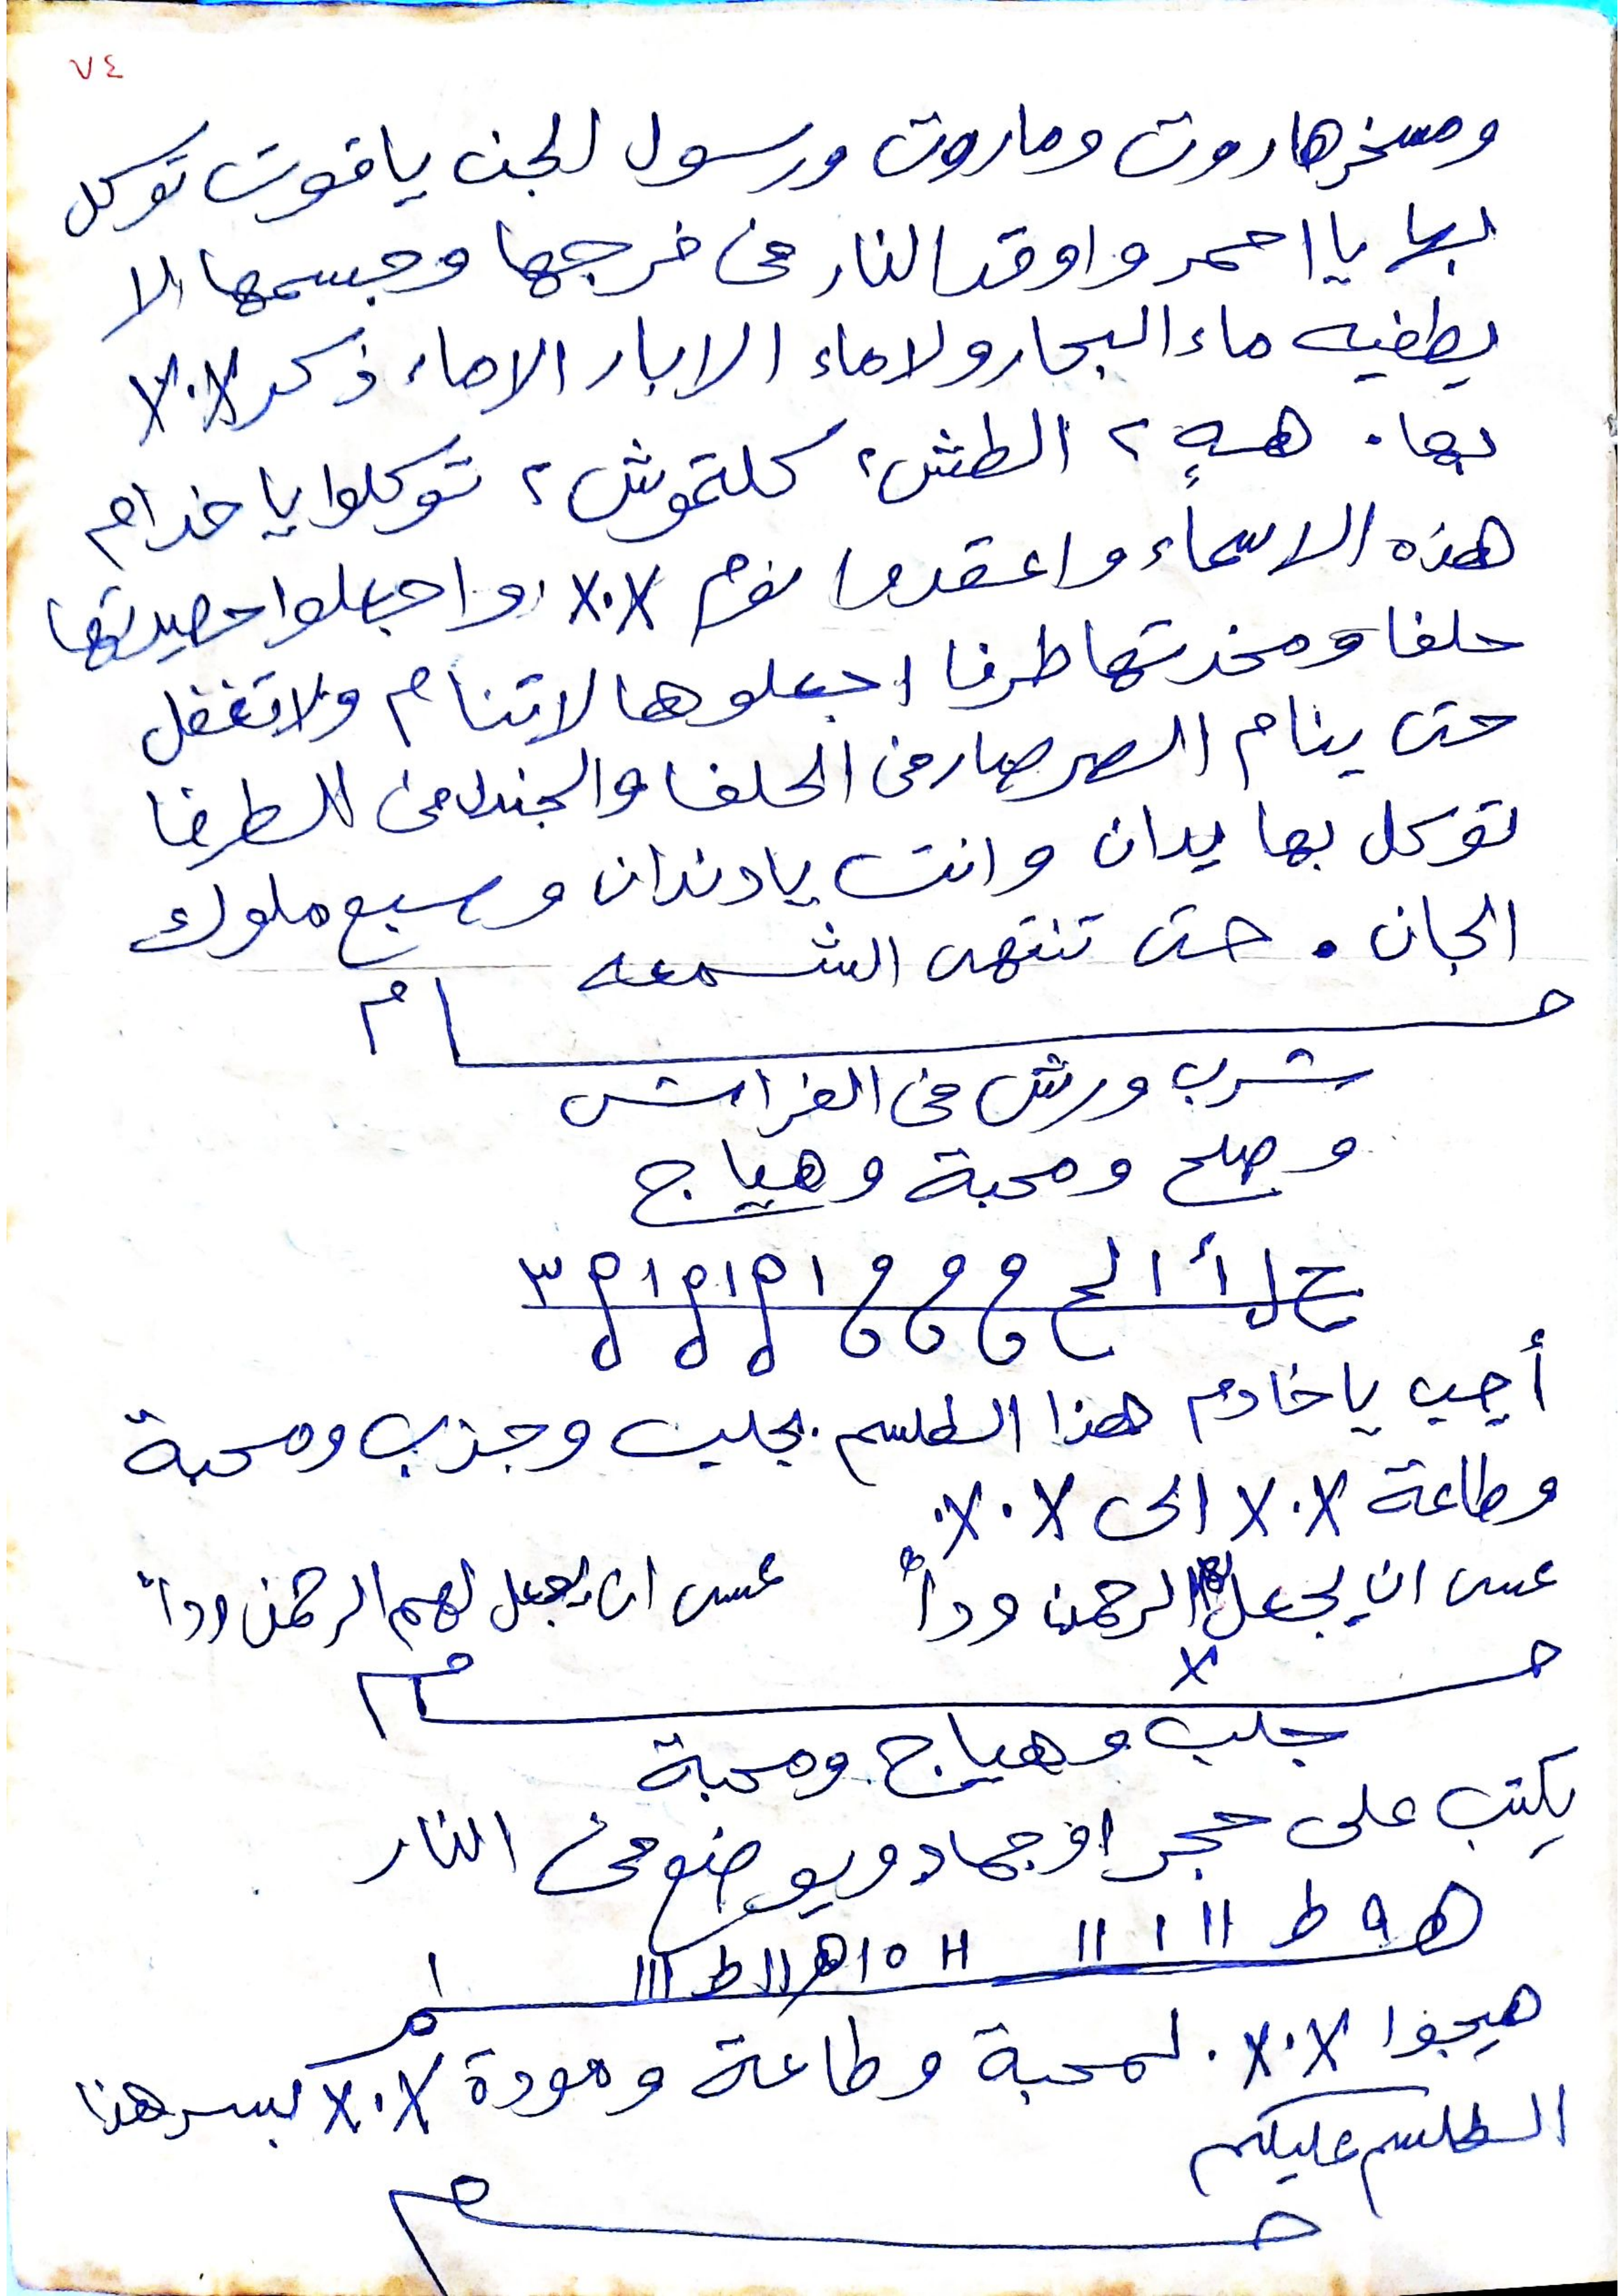 ٧٤
ومسخر هاروت وماروت ورسول الجن ياقوت توكل
بها يا احمر واوقد النار فى فرجها وجسمها لا
يطفيه ماء البحار ولا ماء الابار الا ماء ذكر X.X
بها . ههٍ ٢ الطش ٢ كلتموش ٢ توكلوا يا خدام
هذه الاسماء واعقدوا نوم X.X واجعلوا حصيرتها
حلفا ومخدتها طرفا اجعلوها لاتنام ولاتغفل
حتى ينام الصرصار فى الحلفا والجندل فى الطرفا
توكل بها يدان وانت يادندان وسبع ملوك
الجان . حتى تنتهى الشمعه
شرب ورش فى الفراش
وصلح ومحبة وهياج
ح ل أ ا لح و و و ا م ا م ا م ٣
أجيب ياخادم هذا الطلسم بجلب وجذب ومحبة
وطاعة X.X الى X.X.
عسى ان يجعل لهم الرحمن وداً عسى ان يجعل لهم الرحمن وداً
جلب وهياج ومحبة
يكتب على حجر او جماد ويوضع فى النار
ھ ٩ ط اا ا اا H ٥ ا ھ اا ط ااا
هيجوا X.X. لمحبة وطاعة ومودة X.X بسر هذا
الطلسم عليكم